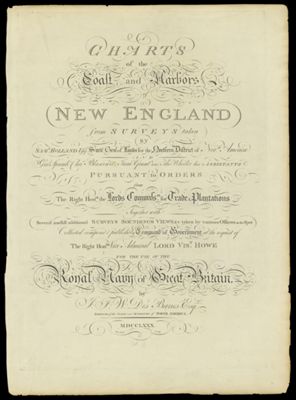 CHARTS
of the
Coast and Harbors
IN
NEW ENGLAND
from SURVEYS taken
BY
SAM^L. HOLLAND Esq^r. Survr. Gen^l. of Lands for the Northern District of North America
PURSUANT to ORDERS
from
The Right Hon^ble. the Lords Commiss^rs. for Trade & Plantations
Together with
Several useful additional SURVEYS SOUNDINGS VIEWS &c. taken by various Officers on the Spot
Collected composed & published by Command of Government at the request of
The Right Hon^ble. Vice Admiral LORD VIS^T. HOWE
FOR THE USE OF THE
Royal Navy of Great Britain.
by
J. F. W. Des Barres Esq^r.
MDCCLXXX.